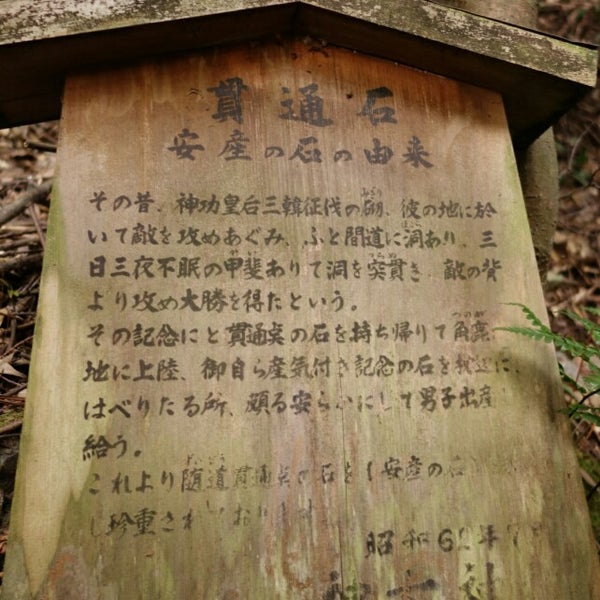 貫通石
安産の石の由来
その昔、神功皇后三韓征伐の砌、彼の地に於
いて敵を攻めあぐみ、ふと間道に洞あり、三
日三夜不眠の甲斐ありて洞を突貫き、敵の背
より攻め大勝を得たという。
その記念にと貫通点の石を持ち帰りて角鹿
地に上陸、御自ら産気付き記念の石を
はべりたる所、頗る安らかにして男子出産
給う。
これより随道貫通点の石を（安産の石
し珍重され
昭和62年